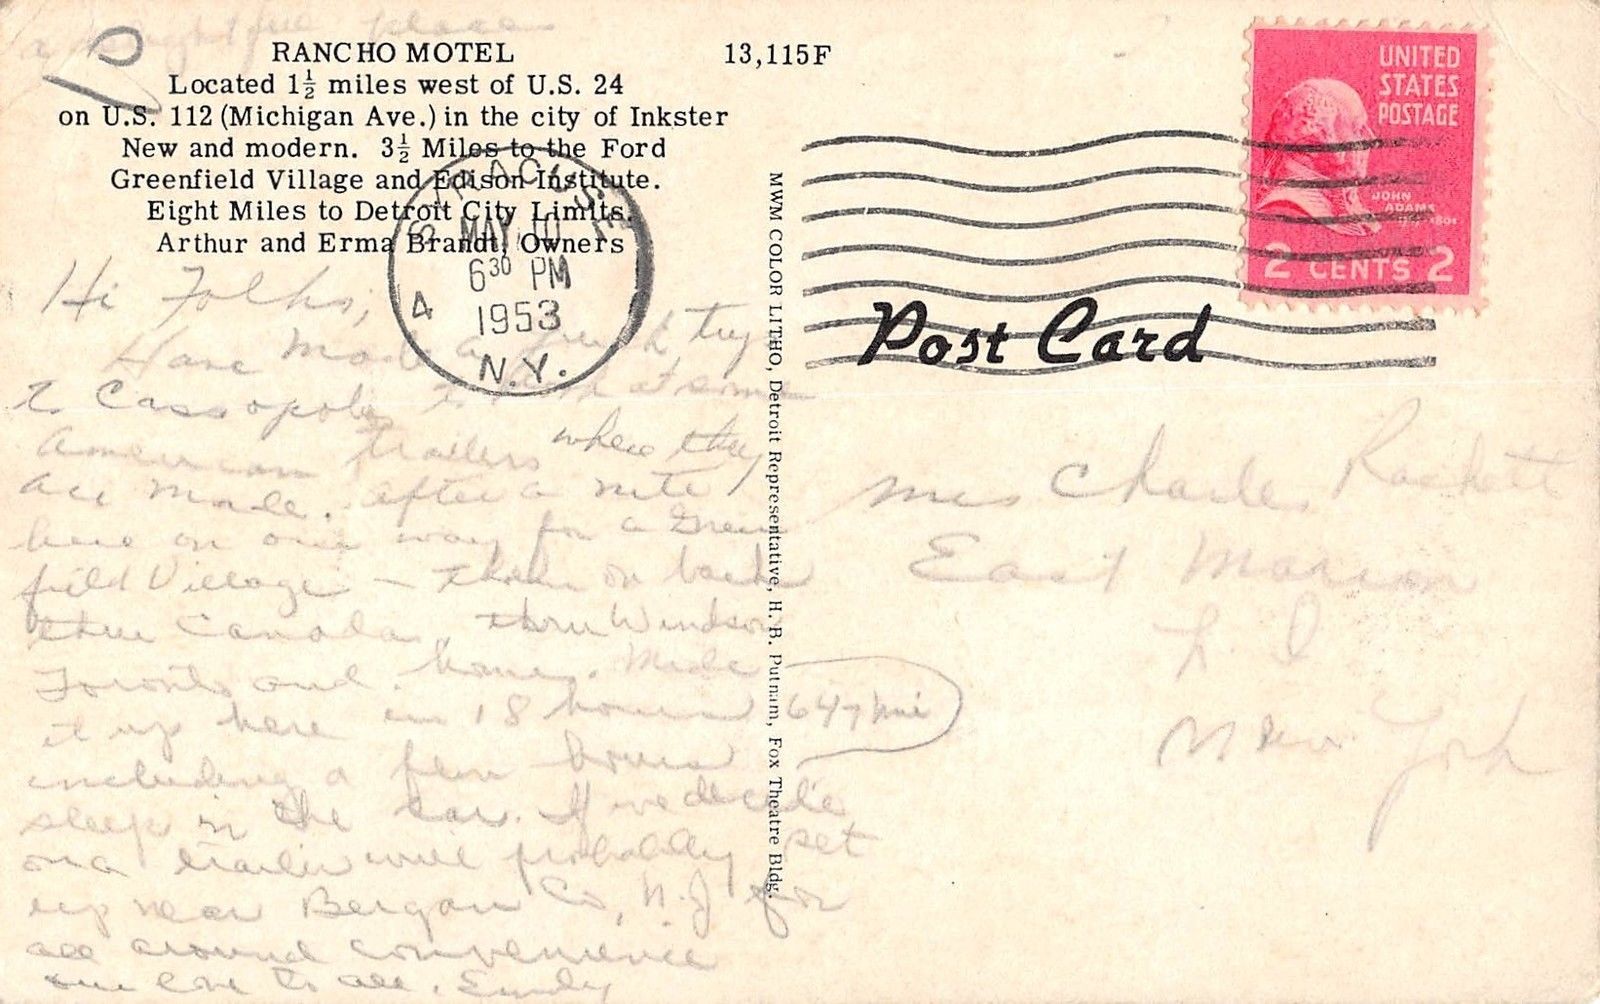 a delightful place
10
RANCHO MOTEL
Located 1½ miles west of U.S. 24
on U.S. 112 (Michigan Ave.) in the city of Inkster
New and modern. 3½ Miles to the Ford
Greenfield Village and Edison Institute.
Eight Miles to Detroit City Limits.
Arthur and Erma Brandt, Owners
13,115F
UNITED
STATES
POSTAGE
JOHN
ADAMS
2 CENTS 2
SYRACUSE
MAY 10
6 30 PM
1953
4
N.Y.
Post Card
MWM COLOR LITHO, Detroit Representative, H. B. Putnam, Fox Theatre Bldg.
Hi Folks,
Have made a trip
to Cassopolis to look at some
American trailers where they
are made. after a nite
here on our way for a Green
field Village – then on back
thru Canada, thru Windsor
Toronto and home. Made
it up here in 18 hours 647 mi
including a few hours
sleep in the car. If we decide
on a trailer will probably set
up near Bergan Co, N.J for
all around convenience
our love to all. Emily
Mrs Charles Rackett
East Marion
L I
New York